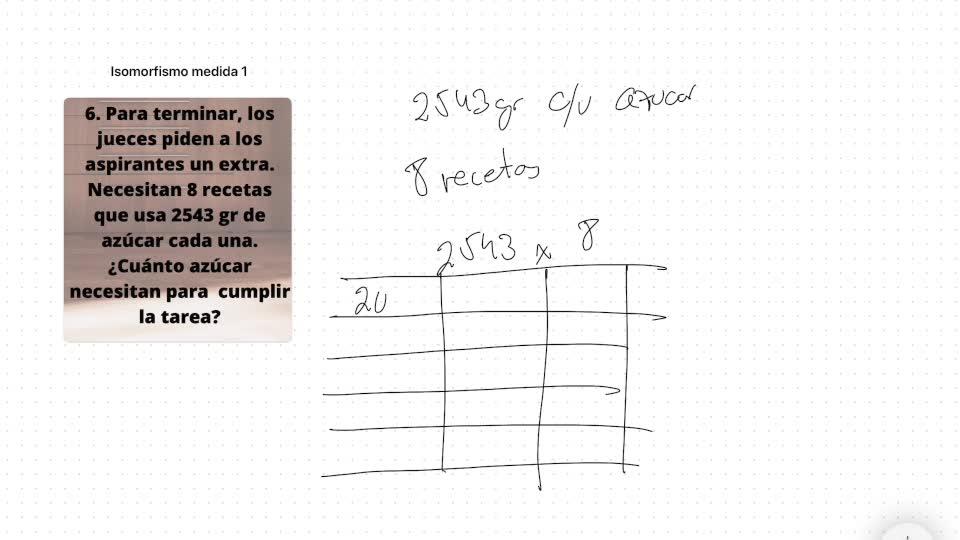 Isomorfismo medida 1
6. Para terminar, los
jueces piden a los
aspirantes un extra.
Necesitan 8 recetas
que usa 2543 gr de
azúcar cada una.
¿Cuánto azúcar
necesitan para cumplir
la tarea?
2543gr c/u azucar
8 recetas
2543 x 8
20